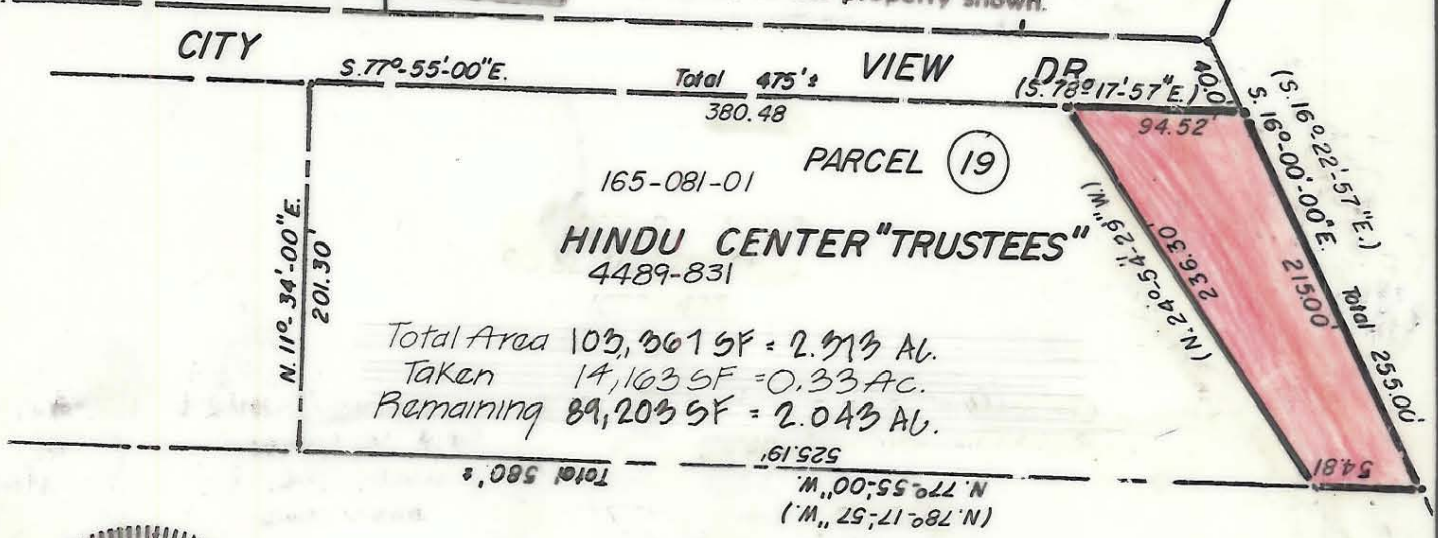 property shown.
CITY VIEW DR.
S.77°-55'-00"E.
Total 475'±
(S. 78°17'-57"E.)
40.0'
380.48
94.52'
(S. 16°-22'-57"E.)
S. 16°-00'-00"E.
215.00'
Total 255.00'
PARCEL 19
165-081-01
HINDU CENTER "TRUSTEES"
4489-831
N. 11°-34'-00"E.
201.30'
(N. 24°-54'-29"W.)
236.30'
Total Area 103,367 SF = 2.373 AC.
Taken 14,163 SF = 0.33 AC.
Remaining 89,203 SF = 2.043 AC.
525.19'
Total 580'±
N. 77°-55'-00"W.
(N. 78°-17'-57"W.)
54.81